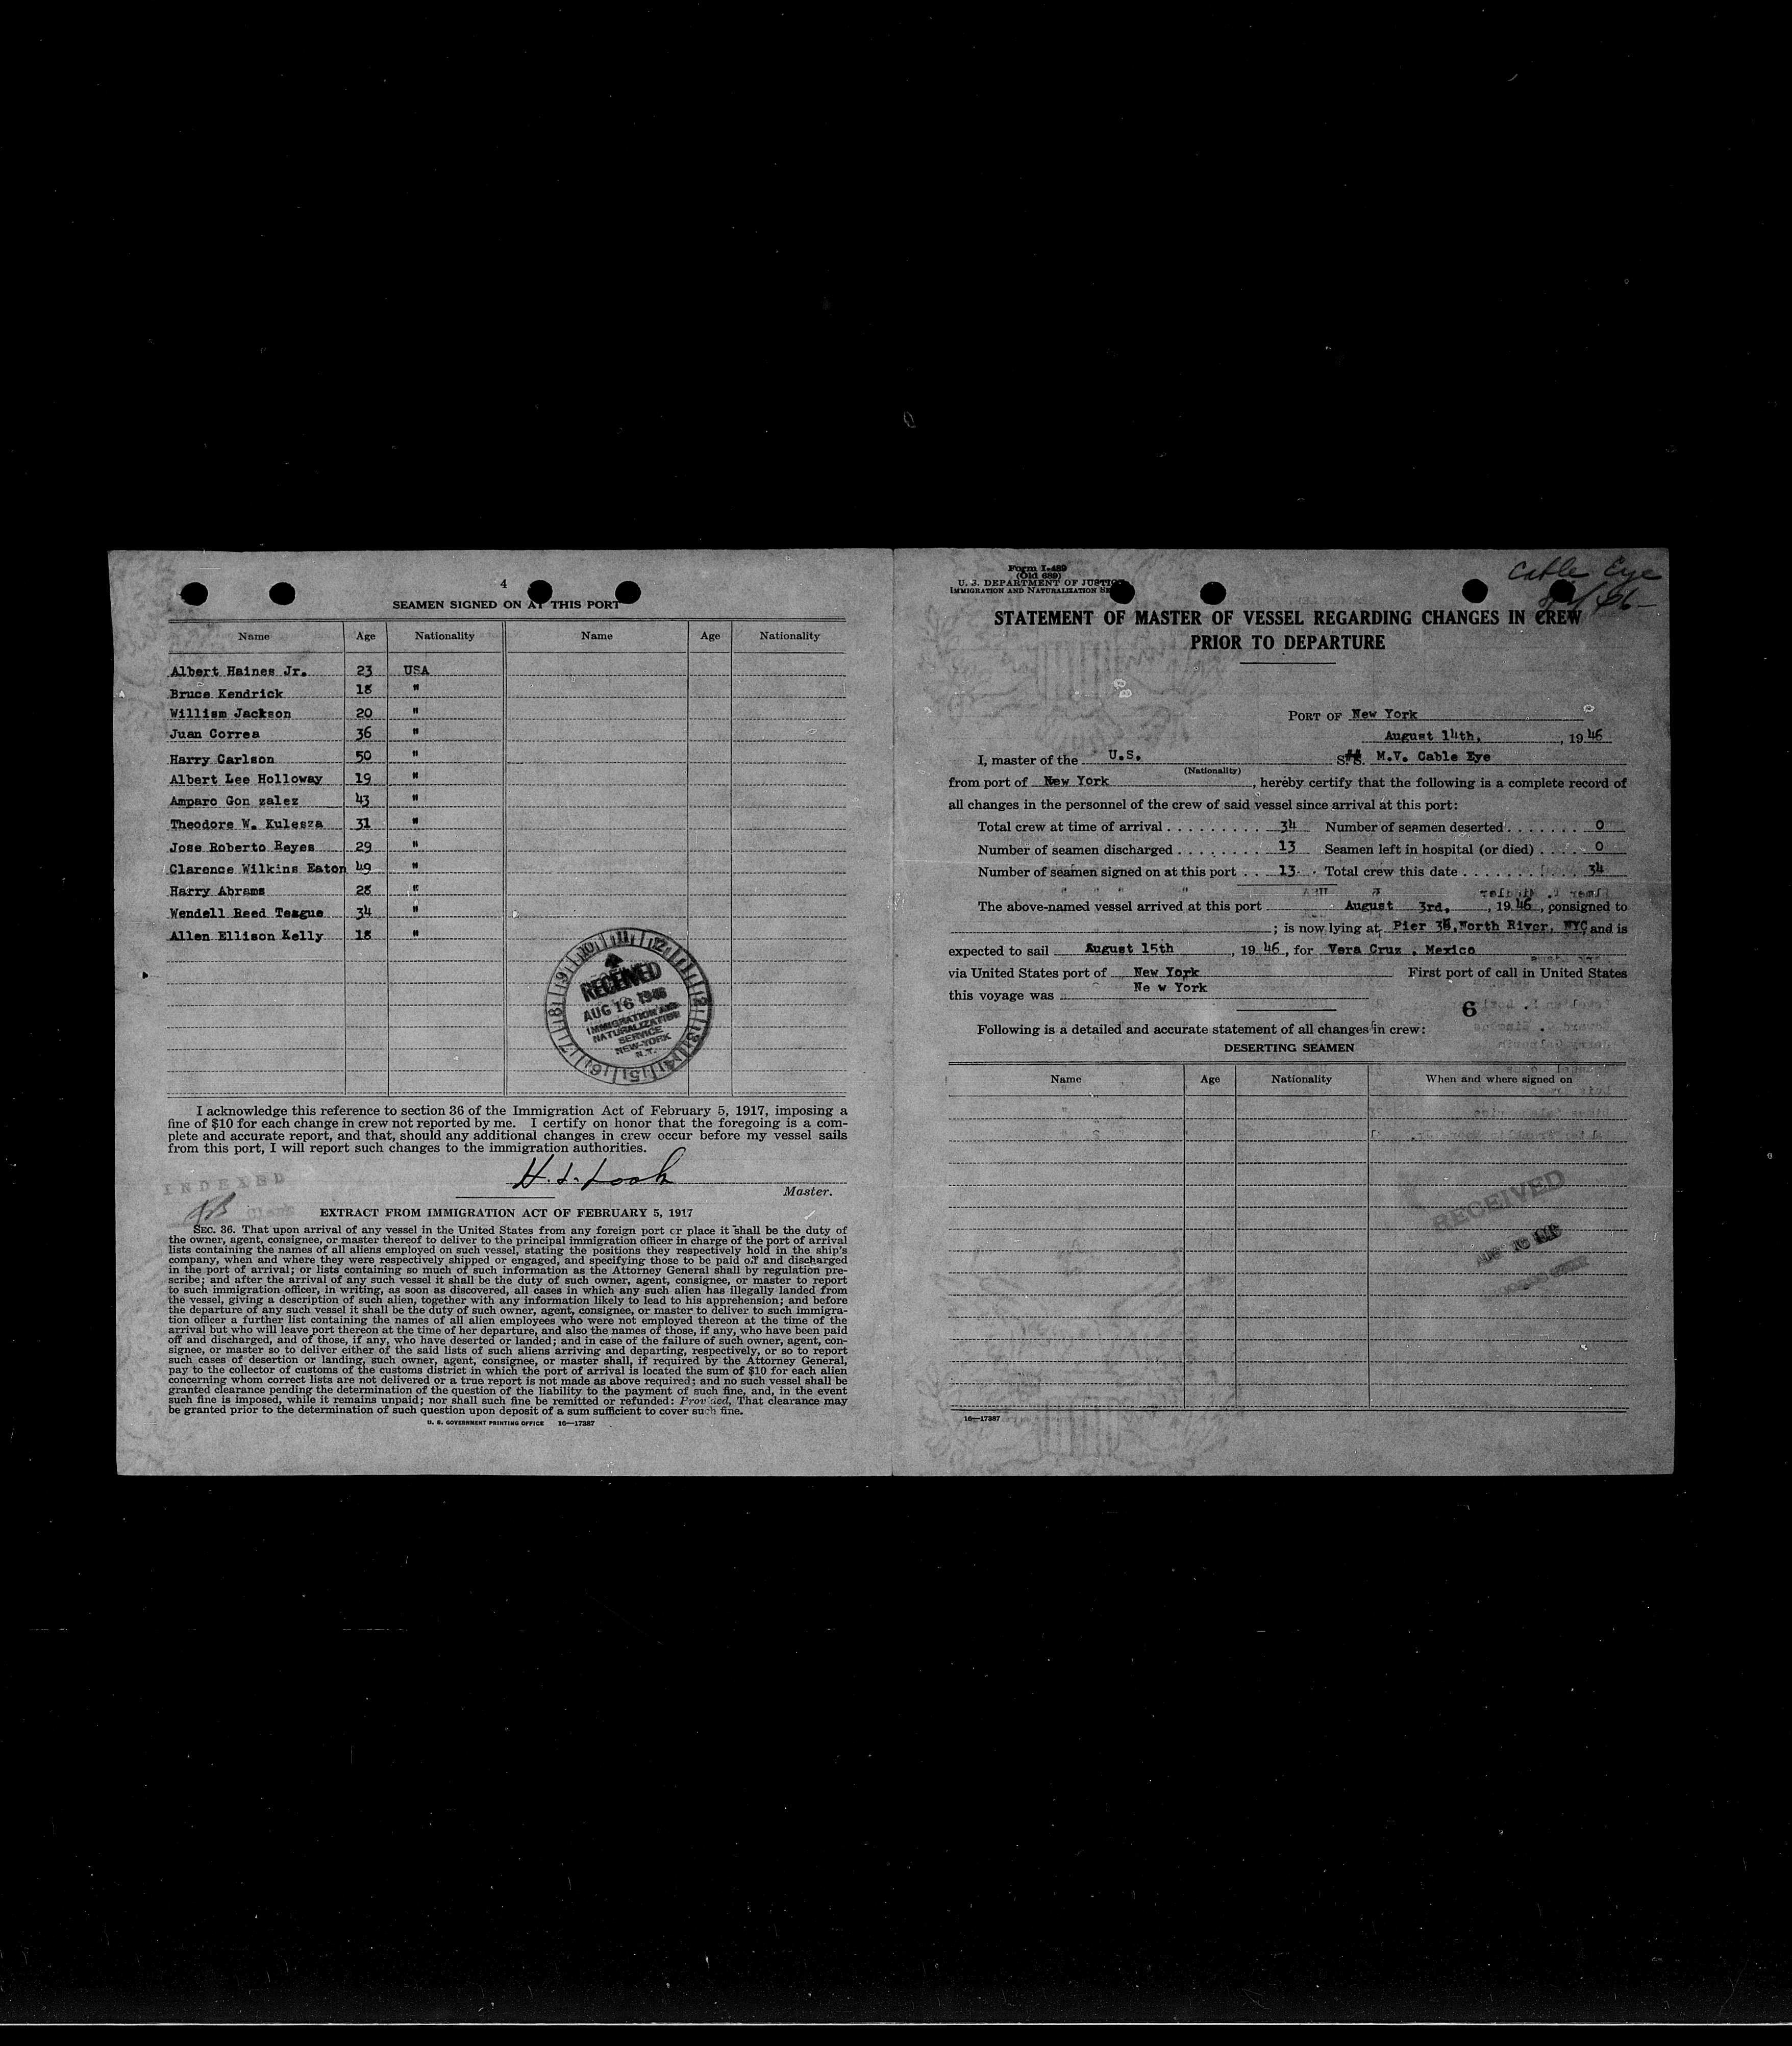 4
SEAMEN SIGNED ON AT THIS PORT
Name Age Nationality Name Age Nationality
Albert Haines Jr. 23 USA
Bruce Kendrick 18 "
William Jackson 20 "
Juan Correa 36 "
Harry Carlson 50 "
Albert Lee Holloway 19 "
Amparo Gon zalez 43 "
Theodore W. Kulesza 31 "
Jose Roberto Reyes 29 "
Clarence Wilkins Eaton 49 "
Harry Abrams 28 "
Wendell Reed Teague 34 "
Allen Ellison Kelly 18 "
RECEIVED
AUG 16 1946
IMMIGRATION AND
NATURALIZATION
SERVICE
NEW-YORK
N.Y.
I acknowledge this reference to section 36 of the Immigration Act of February 5, 1917, imposing a
fine of $10 for each change in crew not reported by me. I certify on honor that the foregoing is a com-
plete and accurate report, and that, should any additional changes in crew occur before my vessel sails
from this port, I will report such changes to the immigration authorities.
Master.
INDEXED
EXTRACT FROM IMMIGRATION ACT OF FEBRUARY 5, 1917
SEC. 36. That upon arrival of any vessel in the United States from any foreign port or place it shall be the duty of
the owner, agent, consignee, or master thereof to deliver to the principal immigration officer in charge of the port of arrival
lists containing the names of all aliens employed on such vessel, stating the positions they respectively hold in the ship's
company, when and where they were respectively shipped or engaged, and specifying those to be paid off and discharged
in the port of arrival; or lists containing so much of such information as the Attorney General shall by regulation pre-
scribe; and after the arrival of any such vessel it shall be the duty of such owner, agent, consignee, or master to report
to such immigration officer, in writing, as soon as discovered, all cases in which any such alien has illegally landed from
the vessel, giving a description of such alien, together with any information likely to lead to his apprehension; and before
the departure of any such vessel it shall be the duty of such owner, agent, consignee, or master to deliver to such immigra-
tion officer a further list containing the names of all alien employees who were not employed thereon at the time of the
arrival but who will leave port thereon at the time of her departure, and also the names of those, if any, who have been paid
off and discharged, and of those, if any, who have deserted or landed; and in case of the failure of such owner, agent, con-
signee, or master so to deliver either of the said lists of such aliens arriving and departing, respectively, or so to report
such cases of desertion or landing, such owner, agent, consignee, or master shall, if required by the Attorney General,
pay to the collector of customs of the customs district in which the port of arrival is located the sum of $10 for each alien
concerning whom correct lists are not delivered or a true report is not made as above required; and no such vessel shall be
granted clearance pending the determination of the question of the liability to the payment of such fine, and, in the event
such fine is imposed, while it remains unpaid; nor shall such fine be remitted or refunded: Provided, That clearance may
be granted prior to the determination of such question upon deposit of a sum sufficient to cover such fine.
U. S. GOVERNMENT PRINTING OFFICE 16—17387
Form I-489
(Old 689)
U. S. DEPARTMENT OF JUSTICE
IMMIGRATION AND NATURALIZATION
Cable Eye
STATEMENT OF MASTER OF VESSEL REGARDING CHANGES IN CREW
PRIOR TO DEPARTURE
PORT OF New York
August 14th, , 1946
I, master of the U.S. S.S. M.V. Cable Eye
(Nationality)
from port of New York , hereby certify that the following is a complete record of
all changes in the personnel of the crew of said vessel since arrival at this port:
Total crew at time of arrival 34 Number of seamen deserted 0
Number of seamen discharged 13 Seamen left in hospital (or died) 0
Number of seamen signed on at this port 13 Total crew this date 34
The above-named vessel arrived at this port August 3rd, , 1946, consigned to
; is now lying at Pier 38, North River, NYC and is
expected to sail August 15th , 1946, for Vera Cruz , Mexico
via United States port of New York First port of call in United States
this voyage was Ne w York
6
Following is a detailed and accurate statement of all changes in crew:
DESERTING SEAMEN
Name Age Nationality When and where signed on
RECEIVED
16—17387